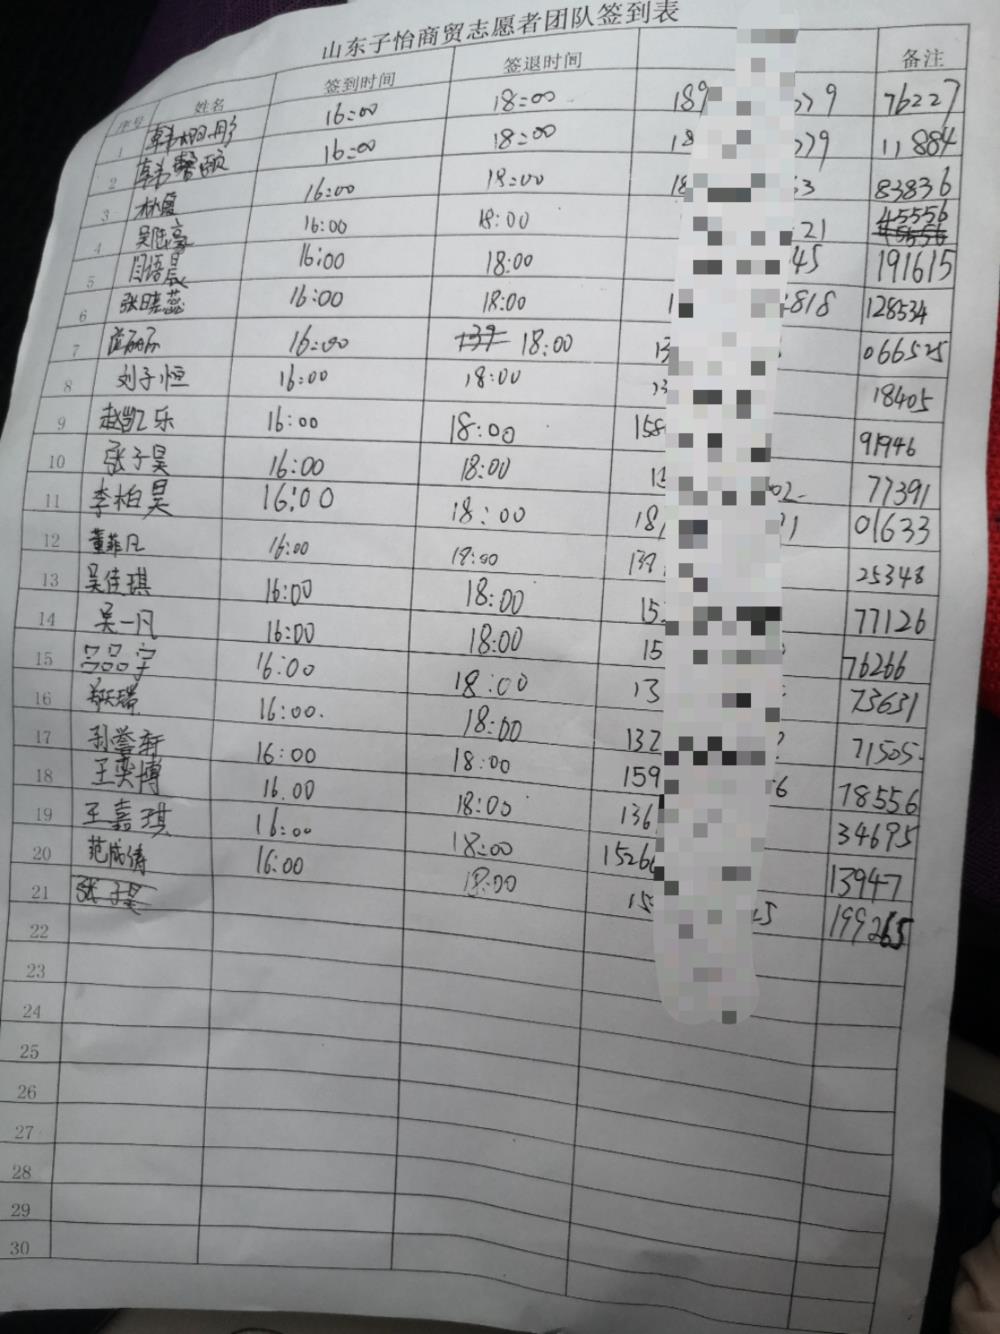 山东子怡商贸志愿者团队签到表
序号 姓名 签到时间 签退时间 备注
1 16:00 18:00 189 79 76227
2 韩馨颐 16:00 18:00 18 79 11884
3 林 16:00 18:00 18 3 83836
4 吴 16:00 18:00 21 45556
5 闫语晨 16:00 18:00 45 191615
6 张晓蕊 16:00 18:00 1 818 128534
7 16:00 18:00 13 066525
8 刘子恒 16:00 18:00 13 18405
9 赵凯乐 16:00 18:00 158 91946
10 张子昊 16:00 18:00 77391
11 李柏昊 16:00 18:00 18 01633
12 董菲凡 16:00 18:00 139 25348
13 吴佳琪 16:00 18:00 15 77126
14 吴一凡 16:00 18:00 15 76266
15 宫品宇 16:00 18:00 13 73631
16 16:00. 18:00 132 71505
17 孙誉轩 16:00 18:00 159 6 78556
18 王奕博 16.00 18:00 136 34695
19 王嘉琪 16:00 18:00 15266 13947
20 范成涛 16:00 18:00 15 5 199265
21 张子昊
22
23
24
25
26
27
28
29
30